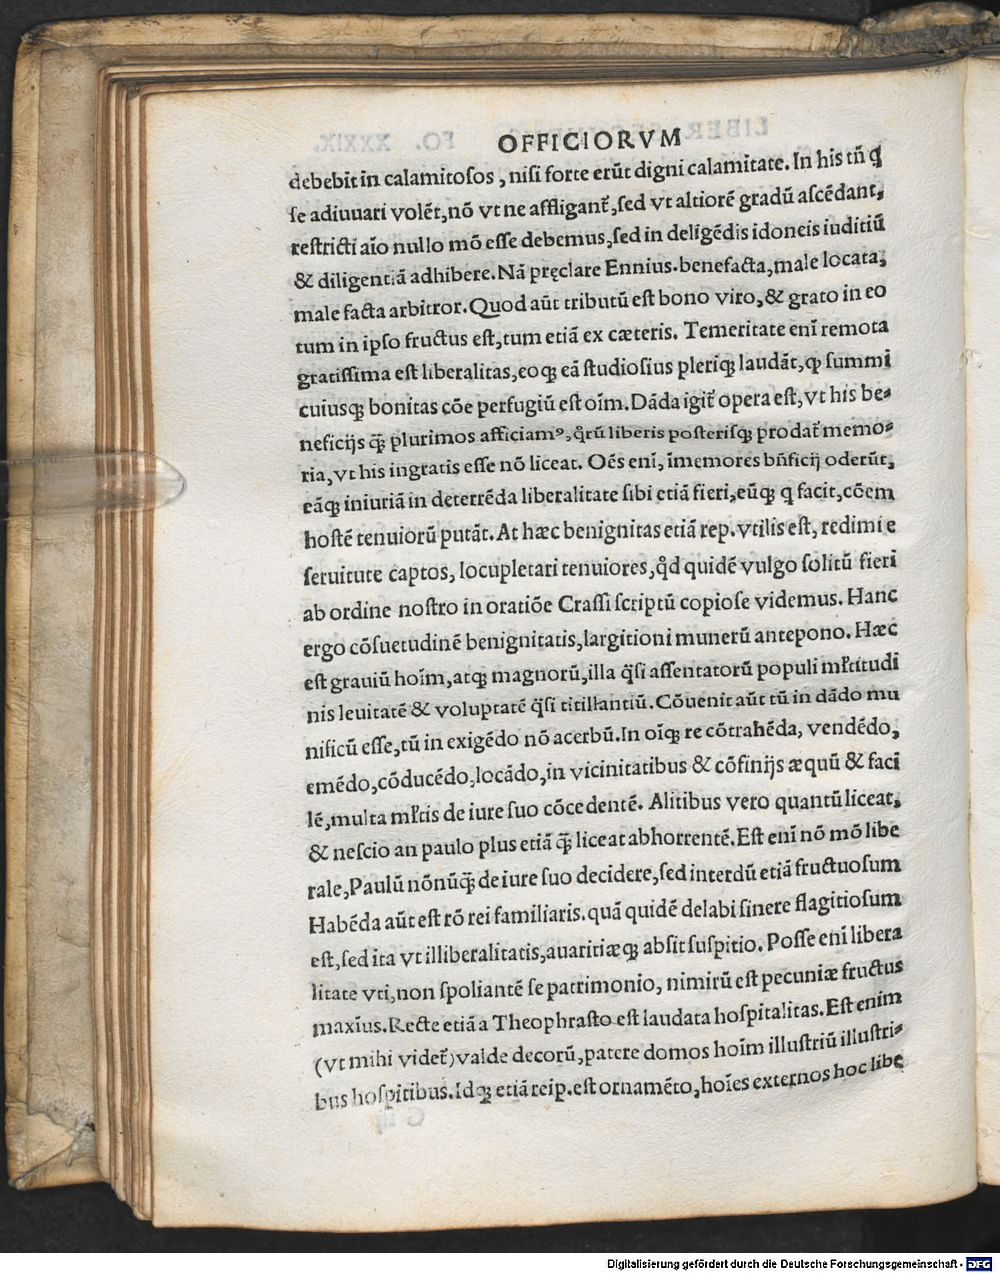 OFFICIORVM
debebit in calamitosos, nisi forte erūt digni calamitate. In his tñ q̄
se adiuuari volēt, nō vt ne affligant᷑, sed vt altiorē gradū ascēdant,
restricti aīo nullo mō esse debemus, sed in deligēdis idoneis iuditiū
& diligentiā adhibere. Nā pręclare Ennius. benefacta, male locata,
male facta arbitror. Quod aūt tributū est bono viro, & grato in eo
tum in ipso fructus est, tum etiā ex cæteris. Temeritate enī remota
gratissima est liberalitas, eoqꝫ eā studiosius pleriqꝫ laudāt, ꝙ summi
cuiusqꝫ bonitas cōe perfugiū est oīm. Dāda igit᷑ opera est, vt his be-
neficijs q̄ꝫ plurimos afficiamꝰ, q̊rū liberis posterisqꝫ prodat᷑ memo-
ria, vt his ingratis esse nō liceat. Oēs enī, īmemores bn̄ficij oderūt,
eāqꝫ iniuriā in deterrēda liberalitate sibi etiā fieri, eūqꝫ q facit, cōem
hostē tenuiorū putāt. At hæc benignitas etiā rep. vtilis est, redimi e
seruitute captos, locupletari tenuiores, q̊d quidē vulgo solitū fieri
ab ordine nostro in oratiōe Crassi scriptū copiose videmus. Hanc
ergo cōsuetudinē benignitatis, largitioni munerū antepono. Hæc
est grauiū hoīm, atqꝫ magnorū, illa q̄si assentatorū populi mł̄titudi
nis leuitatē & voluptatē q̄si titillantiū. Cōuenit aūt tū in dādo mu
nificū esse, tū in exigēdo nō acerbū. In oīqꝫ re cōtrahēda, vendēdo,
emēdo, cōducēdo, locādo, in vicinitatibus & cōfinijs æquū & faci
lē, multa mł̄tis de iure suo cōcedentē. Alitibus vero quantū liceat,
& nescio an paulo plus etiā q̄ꝫ liceat abhorrentē. Est enī nō mō libe
rale, Paulū nōnūq̄ꝫ de iure suo decidere, sed interdū etiā fructuosum
Habēda aūt est rō rei familiaris. quā quidē delabi sinere flagitiosum
est, sed ita vt illiberalitatis, auaritiæqꝫ absit suspitio. Posse enī libera
litate vti, non spoliantē se patrimonio, nimirū est pecuniæ fructus
maxīus. Recte etiā a Theophrasto est laudata hospitalitas. Est enim
(vt mihi videt᷑) valde decorū, patere domos hoīm illustriū illustri-
bus hospitibus. Idqꝫ etiā reip. est ornamēto, hoīes externos hoc libe
Digitalisierung gefördert durch die Deutsche Forschungsgemeinschaft - DFG